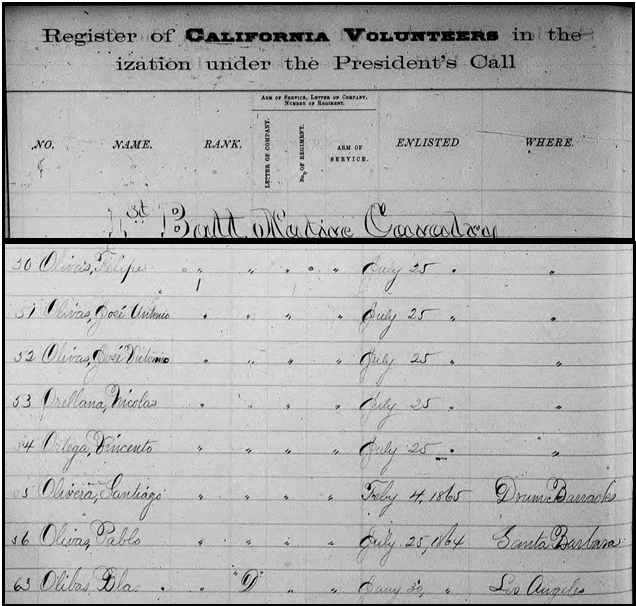 Register of CALIFORNIA VOLUNTEERS in the
ization under the President's Call
ARM OF SERVICE, LETTER OF COMPANY, NUMBER OF REGIMENT.
NO. NAME. RANK. LETTER OF COMPANY. No. OF REGIMENT. ARM OF SERVICE. ENLISTED WHERE.
1st Batt Native Cavalry
50 Olivas, Felipe " " " " July 25 " "
51 Olivas, José Antonio " " " " July 25 " "
52 Olivas, José Victorino " " " " July 25 " "
53 Orellana, Nicolas " " " " July 25 " "
54 Ortega, Vincento " " " " July 25 " "
55 Olivera, Santiago " " " " Feby 4, 1865 Drum Barracks
56 Olivas, Pablo " " " " July 25, 1864 Santa Barbara
63 Olibas, Bla " "D" " " Los Angeles